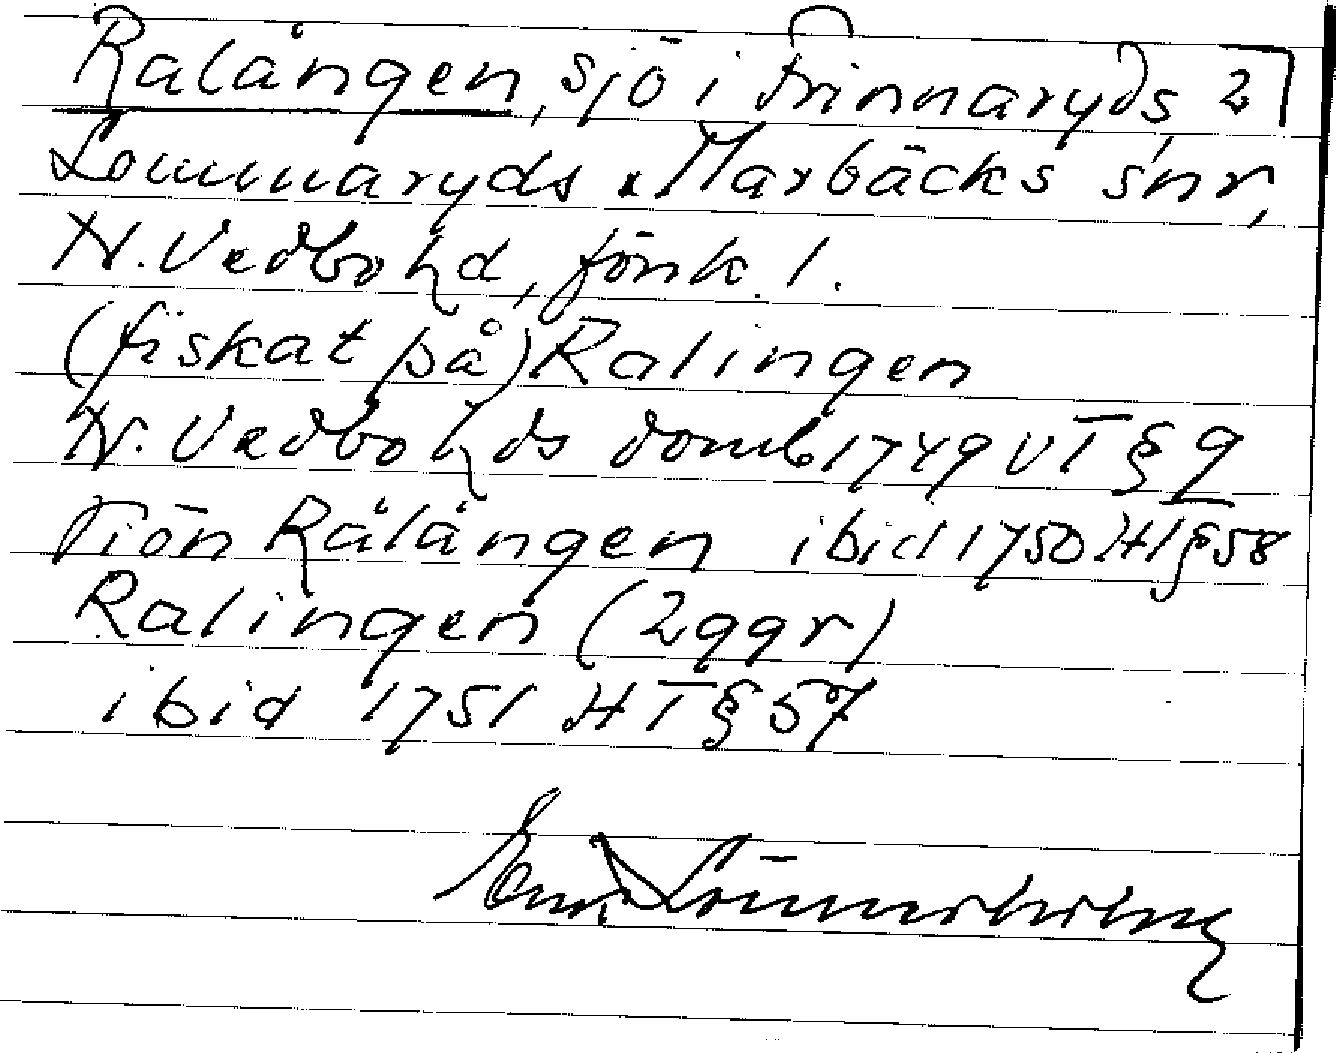 Ralången, sjö i Frinnaryds 2
Lommaryds, Marbäcks snr,
N. Vedbo hd, Jönk. l.
(fiskat på) Ralingen
N. Vedbo hds domb 1749 VT § 9
Siön Rålången ibid 1750 HT § 58
Ralingen (2 ggr)
ibid 1751 HT § 57